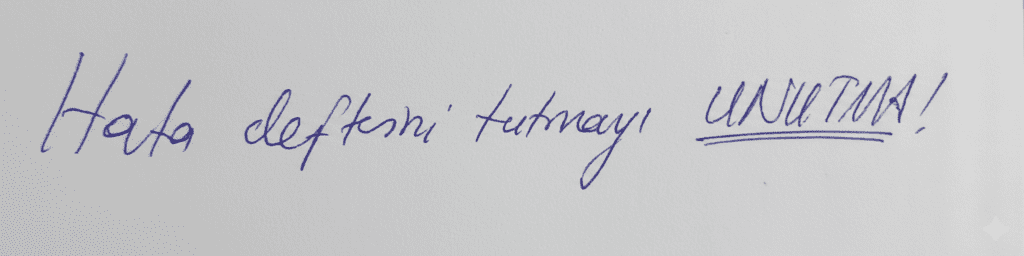 Hata defterini tutmayı UNUTMA!